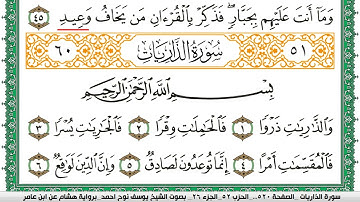 وَمَا أَنتَ عَلَيْهِم بِجَبَّارٍ ۖ فَذَكِّرْ بِالْقُرْءَانِ مَن يَخَافُ وَعِيدِ ٤٥
٥١ سُورَةُ الذَّارِيَاتِ ٦٠
بِسْمِ اللَّهِ الرَّحْمَٰنِ الرَّحِيمِ
وَالذَّارِيَاتِ ذَرْوًا ١ فَالْحَامِلَاتِ وِقْرًا ٢ فَالْجَارِيَاتِ يُسْرًا ٣
فَالْمُقَسِّمَاتِ أَمْرًا ٤ إِنَّمَا تُوعَدُونَ لَصَادِقٌ ٥ وَإِنَّ الدِّينَ لَوَاقِعٌ ٦
سورة الذاريات _الصفحة ٥٢٠_ الحزب ٥٢_الجزء ٢٦_ بصوت الشيخ يوسف نوح احمد_برواية هشام عن ابن عامر